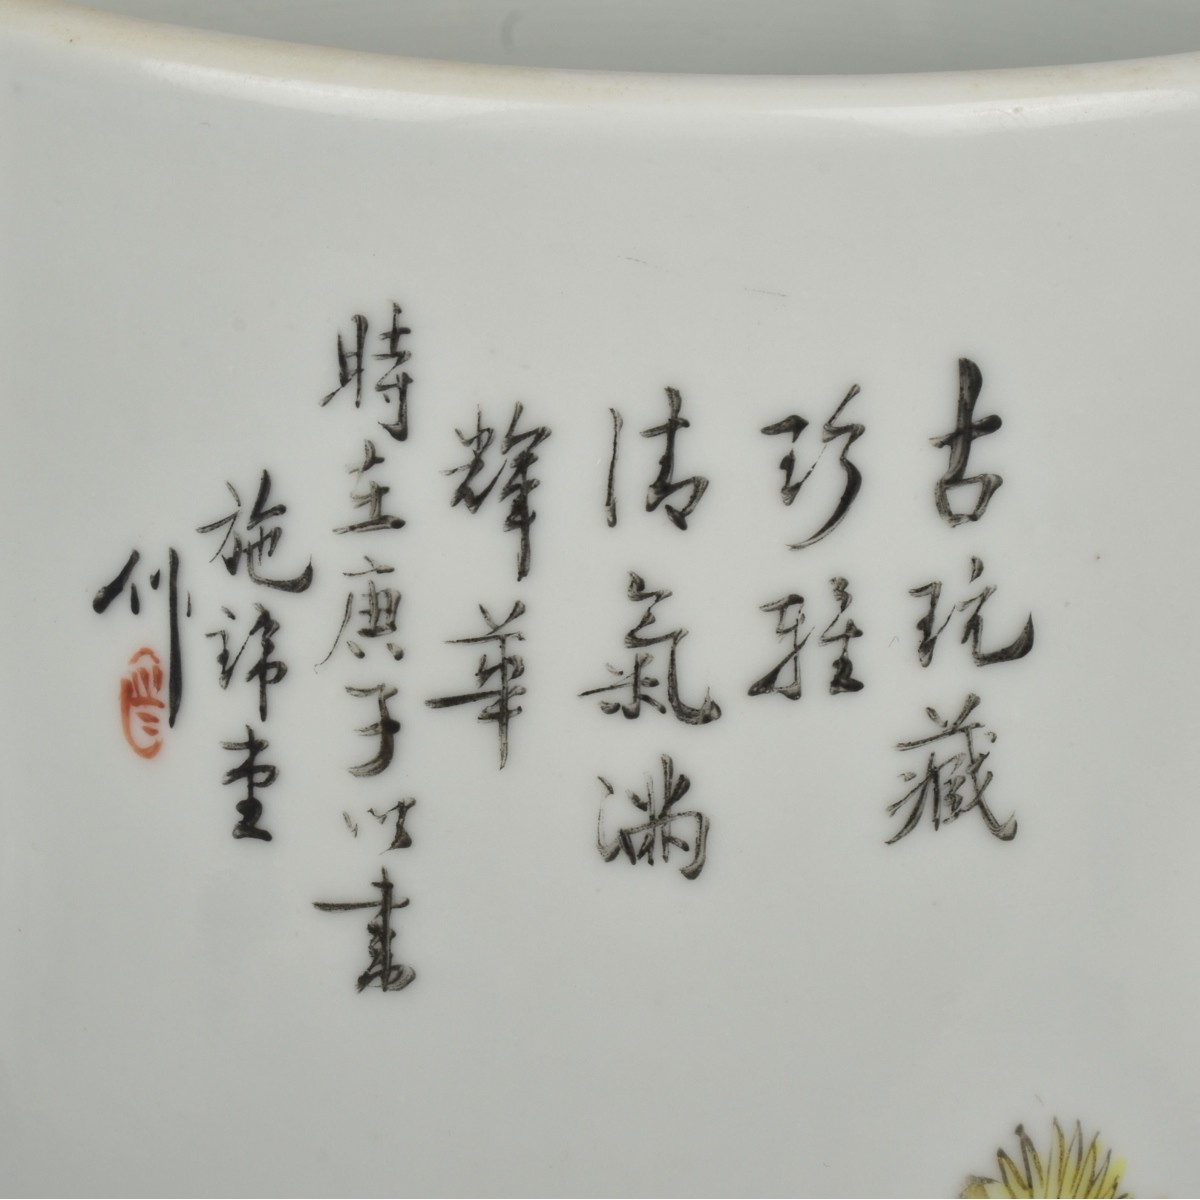 古玩藏
珍雅
清氣滿
輝華
時在庚子以書
施諱堂
作